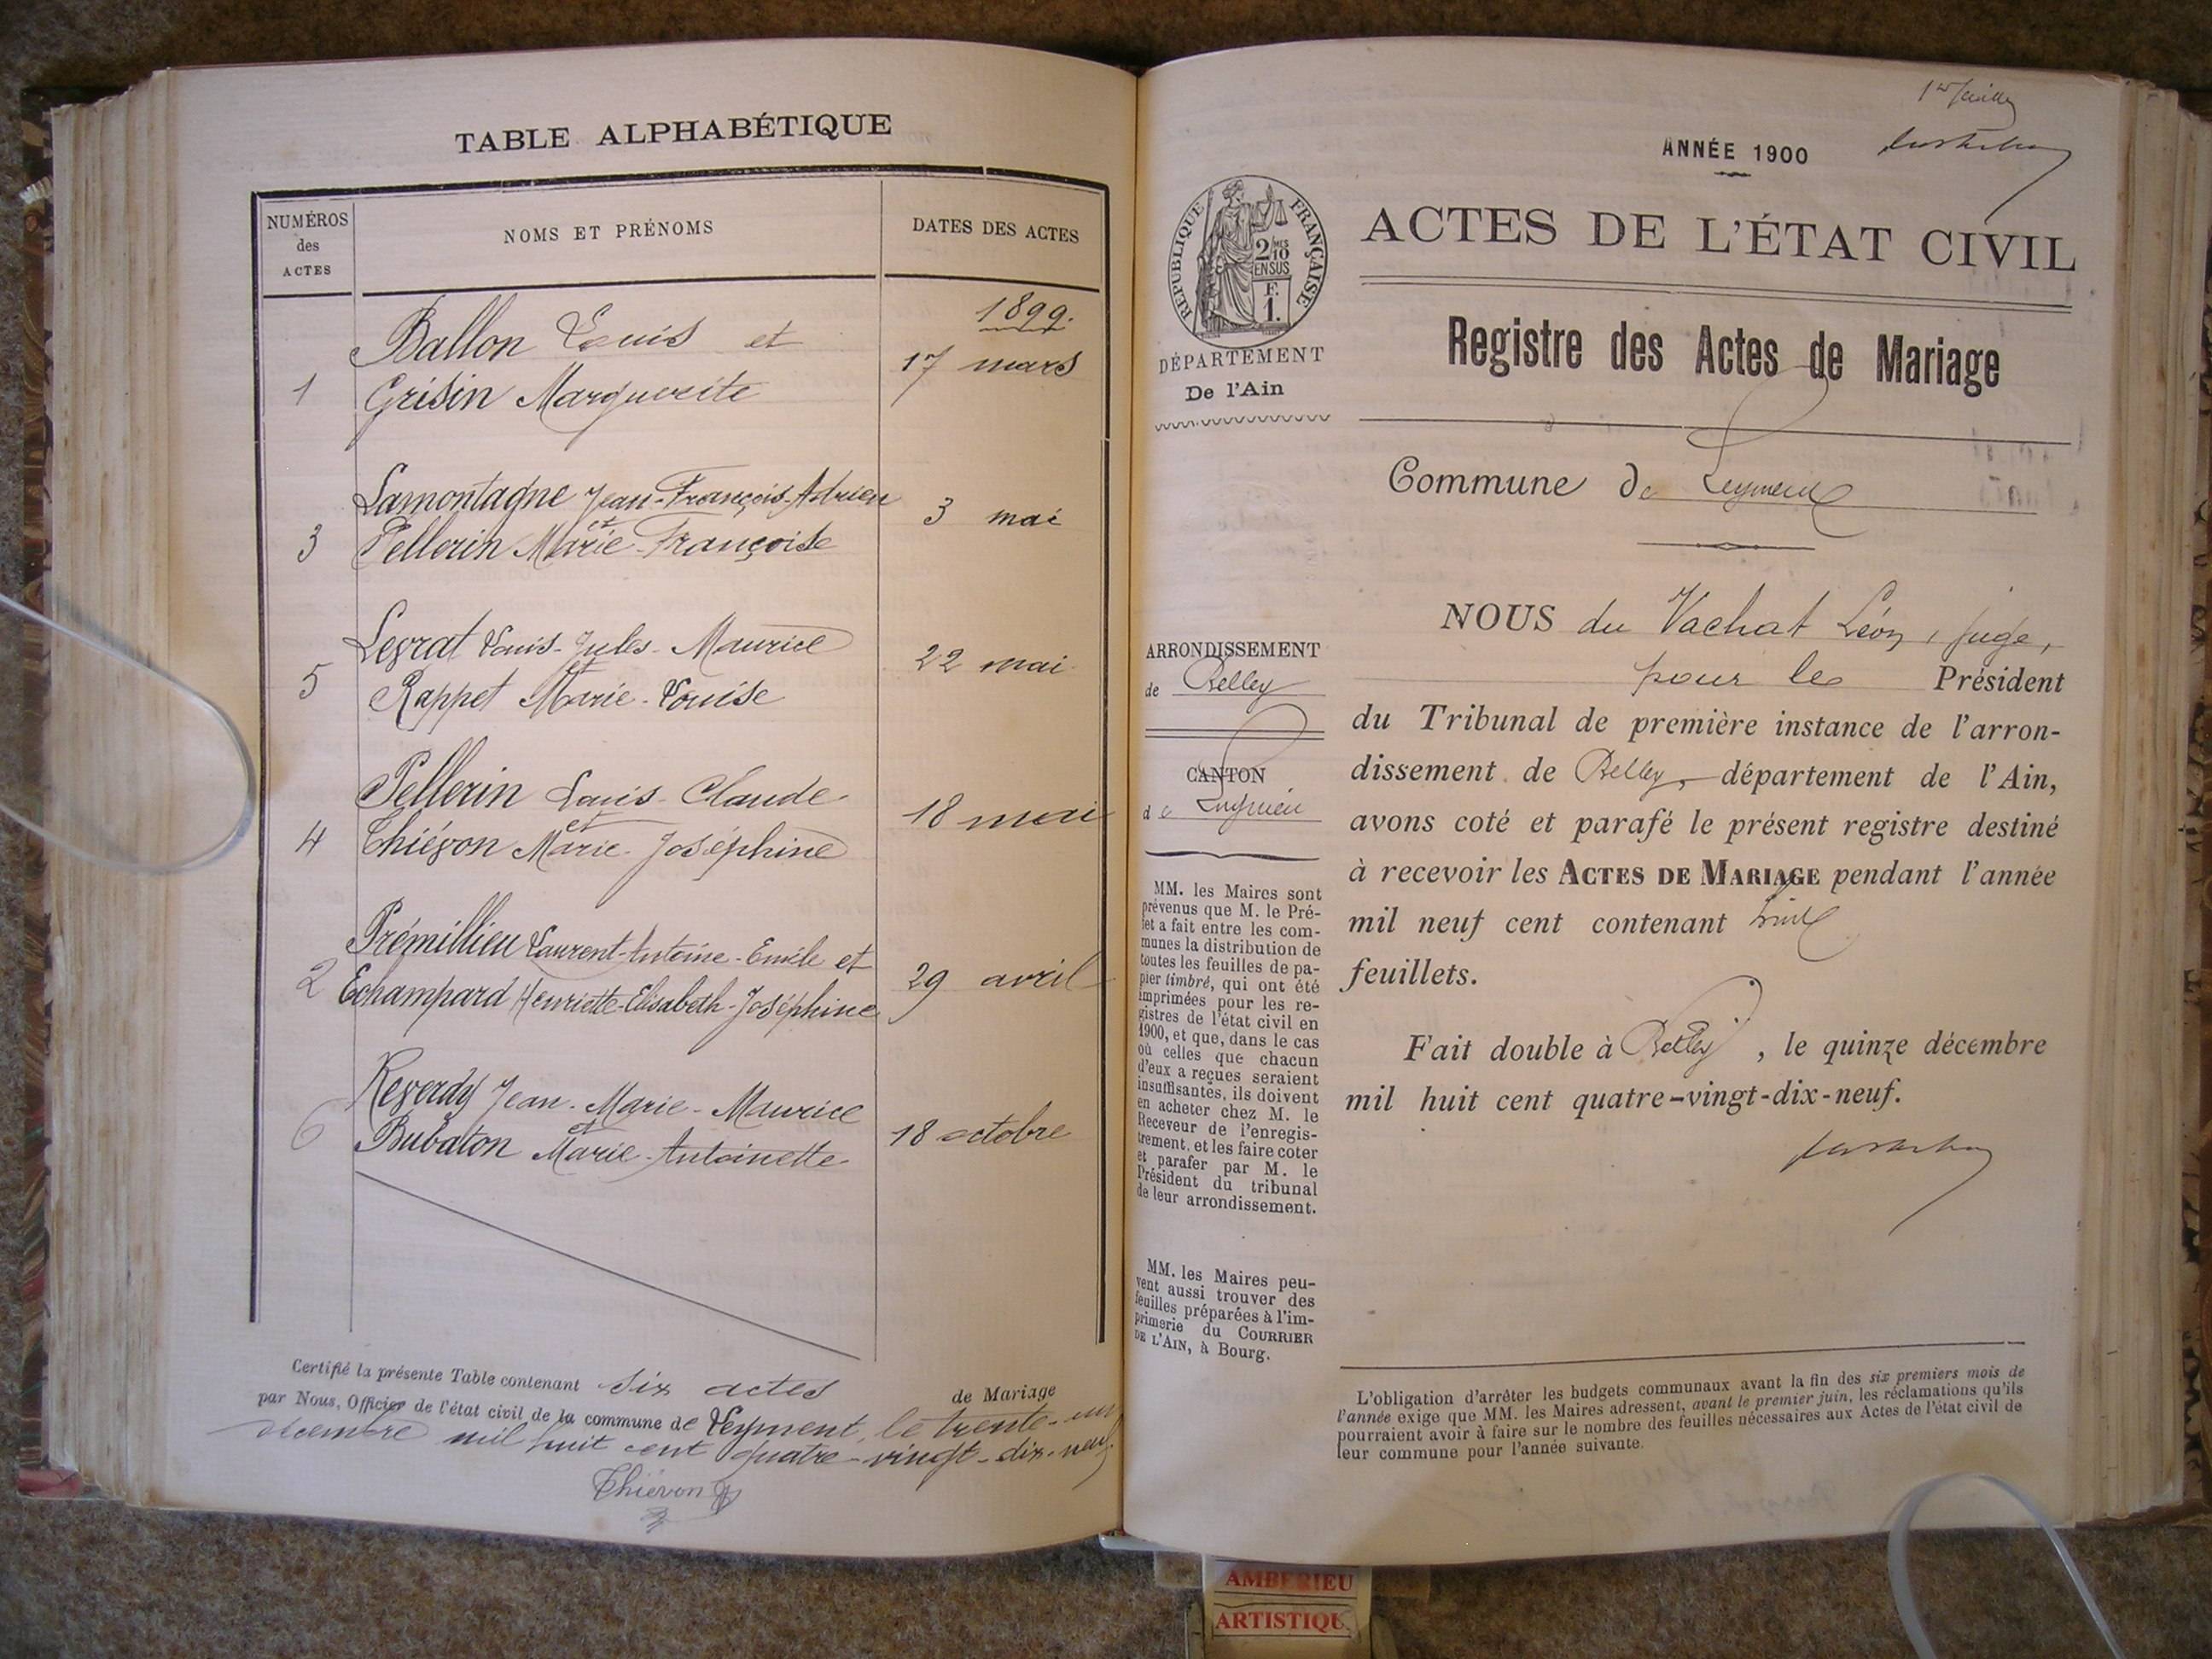 TABLE ALPHABÉTIQUE
NUMÉROS
des
ACTES
NOMS ET PRÉNOMS
DATES DES ACTES
1899.
Ballon Louis et
17 mars
1 Grisin Marguerite
Lamontagne Jean-François-Adrien
et
3 mai
3 Pellerin Marie-Françoise
Legrat Louis-Jules-Maurice
et
22 mai
5 Rappet Marie-Louise
Pellerin Louis-Claude
et
18 mai
4 Thiévon Marie-Joséphine
Prémillieu Laurent-Antoine-Emile et
29 avril
2 Echampard Henriette-Elisabeth-Joséphine
Reverdy Jean-Marie-Maurice
et
18 octobre
6 Bubaton Marie-Antoinette
Certifié la présente Table contenant six actes de Mariage
par Nous, Officier de l'état civil de la commune de Leyment, le trente-un
décembre mil huit cent quatre-vingt-dix-neuf.
Thiévon
1er feuillet
ANNÉE 1900
RÉPUBLIQUE FRANÇAISE
2/10
EN SUS
F.
1.
ACTES DE L'ÉTAT CIVIL
Registre des Actes de Mariage
DÉPARTEMENT
De l'Ain
Commune de Leyment
ARRONDISSEMENT
de Belley
CANTON
de Lagnieu
MM. les Maires sont
prévenus que M. le Pré-
fet a fait entre les com-
munes la distribution de
toutes les feuilles de pa-
pier timbré, qui ont été
imprimées pour les re-
gistres de l'état civil en
1900, et que, dans le cas
où celles que chacun
d'eux a reçues seraient
insuffisantes, ils doivent
en acheter chez M. le
Receveur de l'enregis-
trement, et les faire coter
et parafer par M. le
Président du tribunal
de leur arrondissement.
MM. les Maires peu-
vent aussi trouver des
feuilles préparées à l'im-
primerie du COURRIER
DE L'AIN, à Bourg.
NOUS du Vachat Léon, juge,
pour le Président
du Tribunal de première instance de l'arron-
dissement de Belley, département de l'Ain,
avons coté et parafé le présent registre destiné
à recevoir les ACTES DE MARIAGE pendant l'année
mil neuf cent contenant
feuillets.
Fait double à Belley, le quinze décembre
mil huit cent quatre-vingt-dix-neuf.
L'obligation d'arrêter les budgets communaux avant la fin des six premiers mois de
l'année exige que MM. les Maires adressent, avant le premier juin, les réclamations qu'ils
pourraient avoir à faire sur le nombre des feuilles nécessaires aux Actes de l'état civil de
leur commune pour l'année suivante.
AMBERIEU
ARTISTIQU